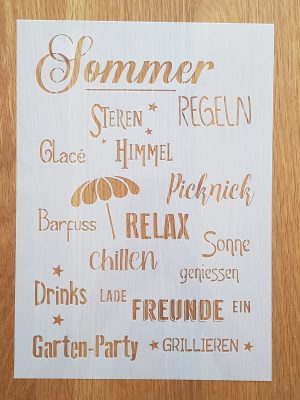 Sommer
REGELN
STEREN
HIMMEL
Glacé
Picknick
Barfuss
RELAX
Sonne
geniessen
chillen
Drinks
LADE FREUNDE EIN
Garten-Party
GRILLIEREN